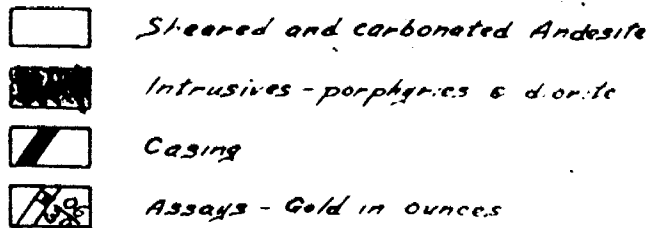 Sheared and carbonated Andesite
Intrusives - porphyries & diorite
Casing
Assays - Gold in ounces